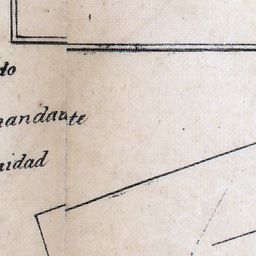 do
andante
idad